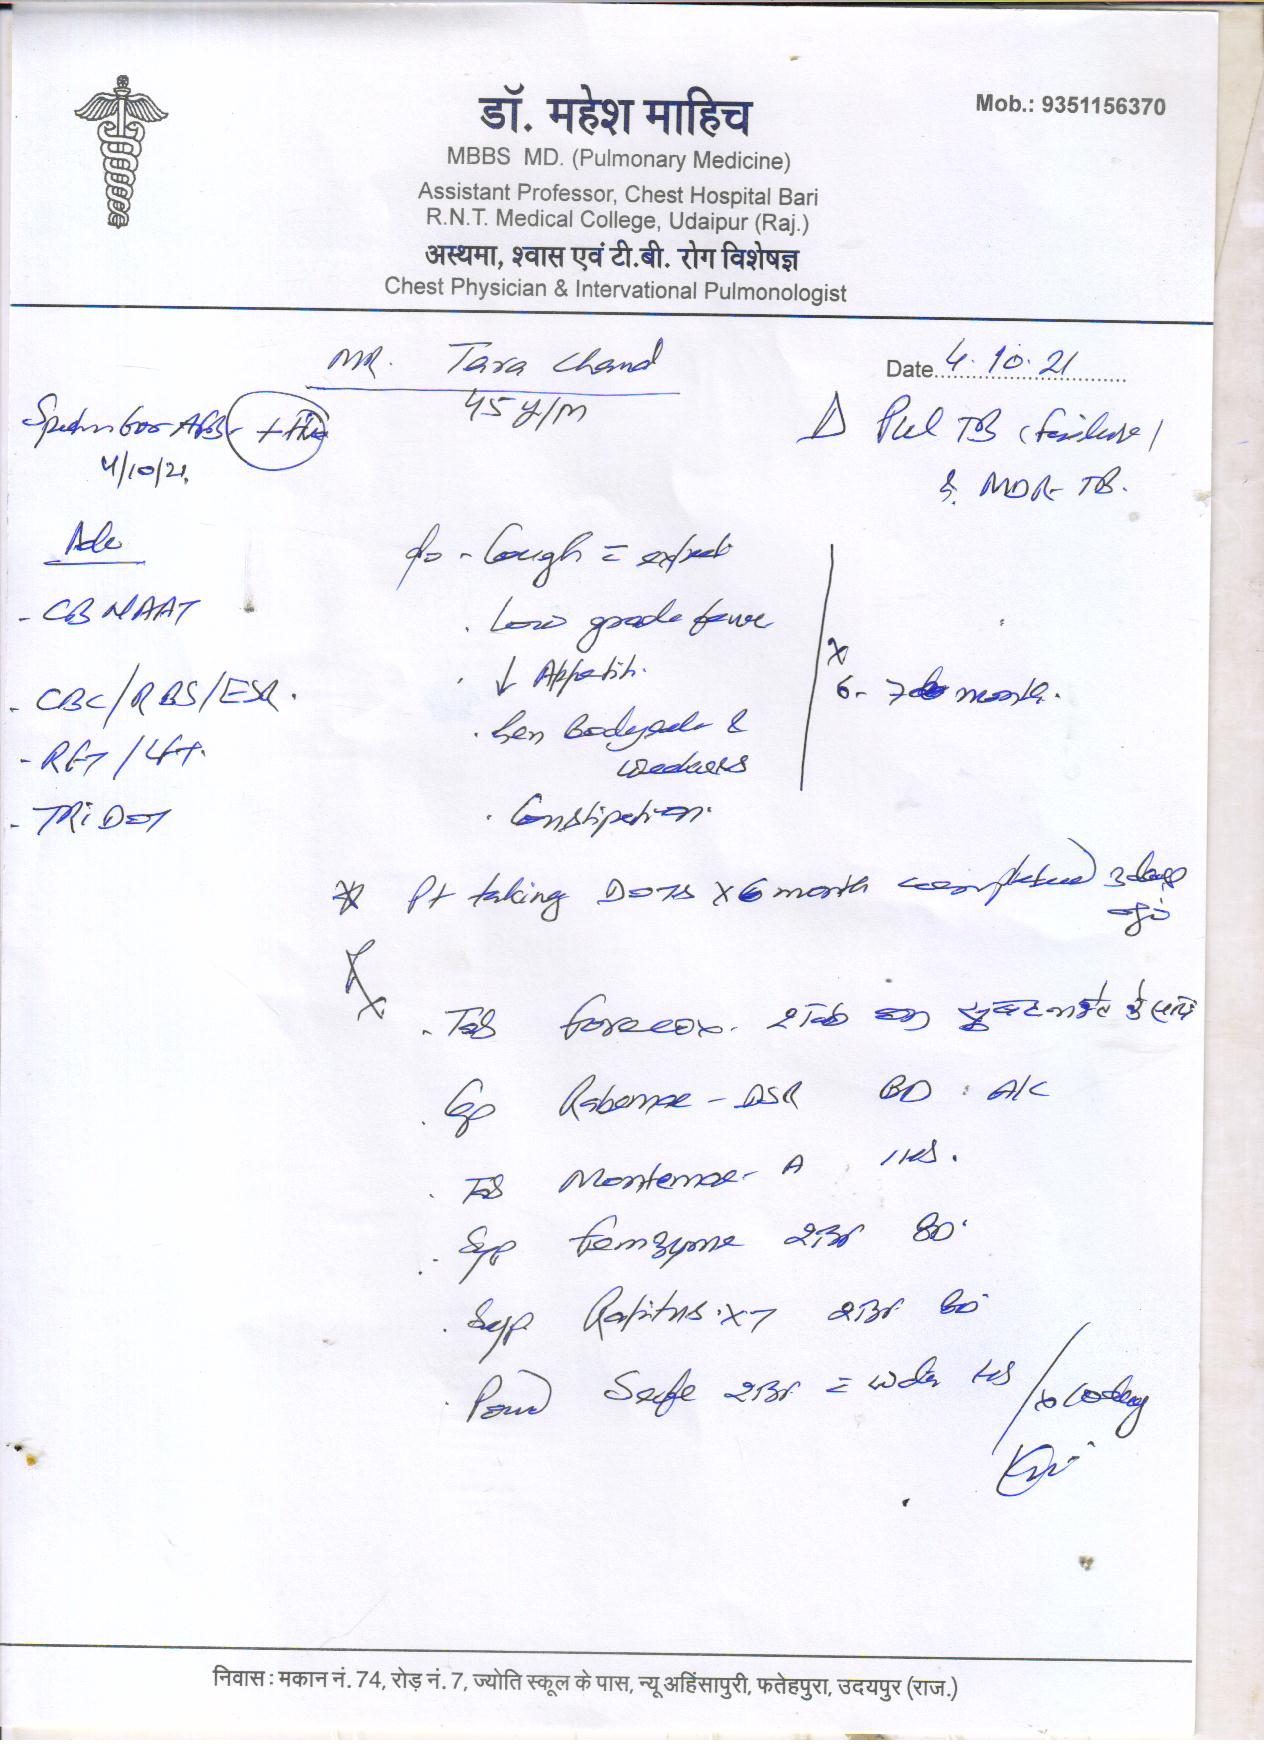 डॉ. महेश माहिच
Mob.: 9351156370
MBBS MD. (Pulmonary Medicine)
Assistant Professor, Chest Hospital Bari
R.N.T. Medical College, Udaipur (Raj.)
अस्थमा, श्वास एवं टी.बी. रोग विशेषज्ञ
Chest Physician & Intervational Pulmonologist
MR. Tara Chand
Date 4.10.21
45 y/m
Sputum for AFB - +tive
4/10/21.
Δ Pul TB (failure)
? MDR-TB.
Adv
- CBNAAT
- CBC/RBS/ESR.
- RFT/LFT.
- TRiDOT
c/o - Cough = expect
. Low grade fever
. ↓ Appetite.
. Gen Bodyache &
weakness
x
6-7 month.
. Constipation.
* Pt taking DOTS x 6 month completed 3 days
ago
. Tab Forecox. 2 Tab
. Cap Rabemac-DSR BD A/C
. Tab Montemac-A 1 HS.
. Syp Femzyme BD
. Syp x7 BD
. Powd Safe = water HS
x 10 day
निवास : मकान नं. 74, रोड़ नं. 7, ज्योति स्कूल के पास, न्यू अहिंसापुरी, फतेहपुरा, उदयपुर (राज.)